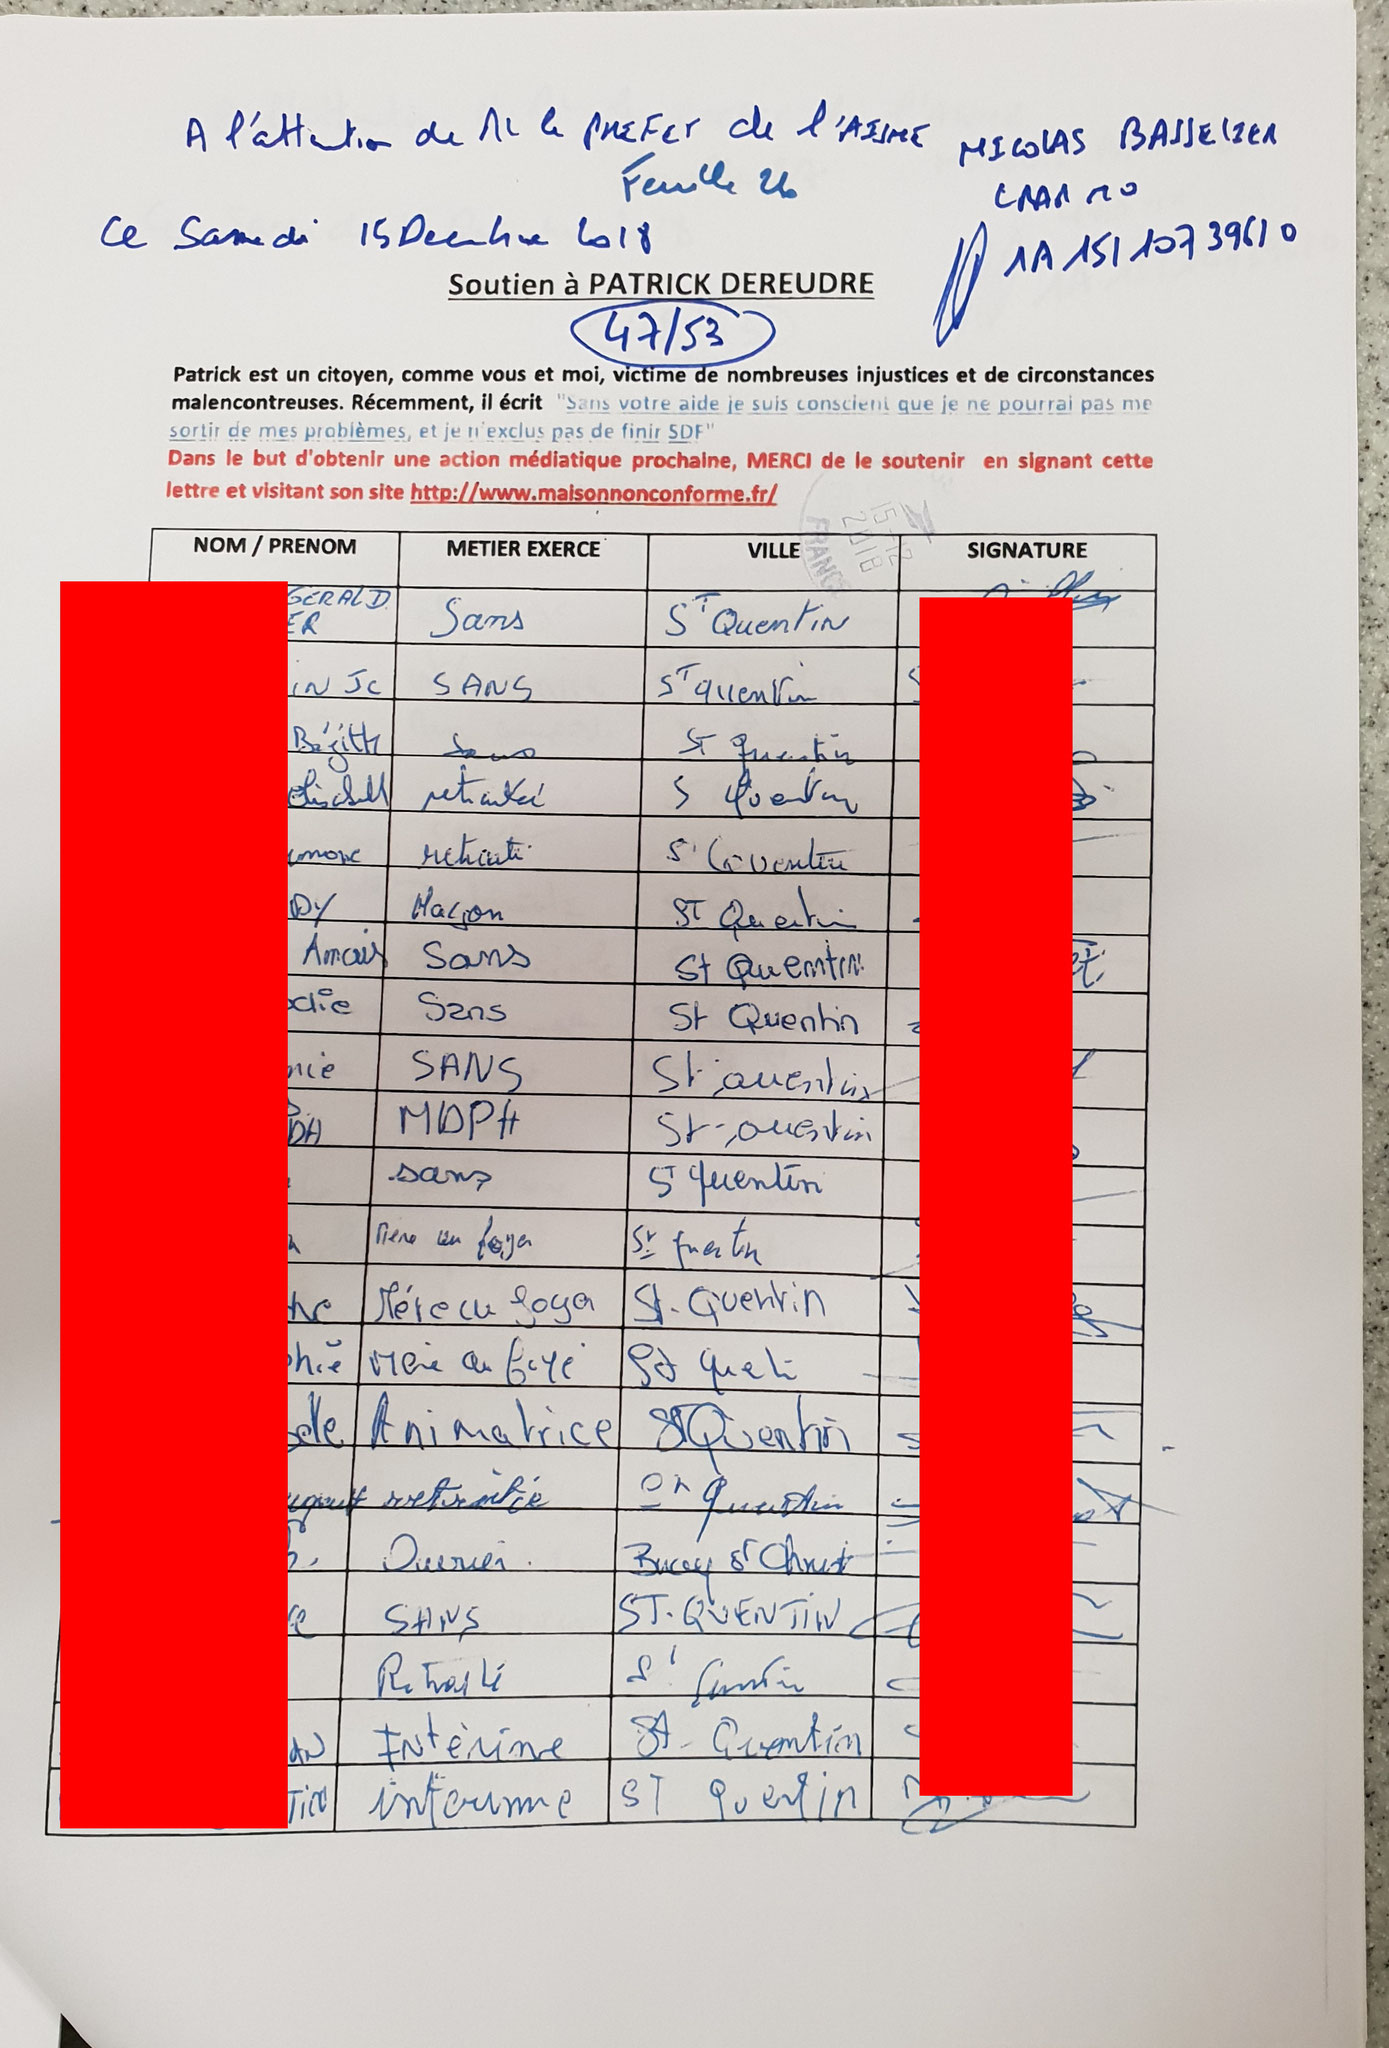 A l'attention de M le PREFET de l'AISNE NICOLAS BASSELIER
Feuille 26
LRAR NO
Ce Samedi 15 Decembre 2018
1A 151 107 3961 0
Soutien à PATRICK DEREUDRE
47/53
Patrick est un citoyen, comme vous et moi, victime de nombreuses injustices et de circonstances
malencontreuses. Récemment, il écrit "Sans votre aide je suis conscient que je ne pourrai pas me
sortir de mes problèmes, et je n'exclus pas de finir SDF"
Dans le but d'obtenir une action médiatique prochaine, MERCI de le soutenir en signant cette
lettre et visitant son site http://www.maisonnonconforme.fr/
15-12
2018
FRANCE
NOM / PRENOM METIER EXERCE VILLE SIGNATURE
GERALD
ER Sans St Quentin
IN JC SANS St quentin
Sans St quentin
retraité S Quentin
retraité St Quentin
DY Maçon St Quentin
Anais Sans St Quentin
odie Sans St Quentin
nie SANS St quentin
DA MDPH St-quentin
sans St quentin
Mère au foyer St quentin
Mére au foyer St-Quentin
phie Mère au foyé St quenti
elle Animatrice St Quentin
retraitée Quentin
Ouvrier. Bucy St Christ
SANS ST-QUENTIN
Retraité St Quentin
AN Intèrime St-Quentin
interimme ST Quentin